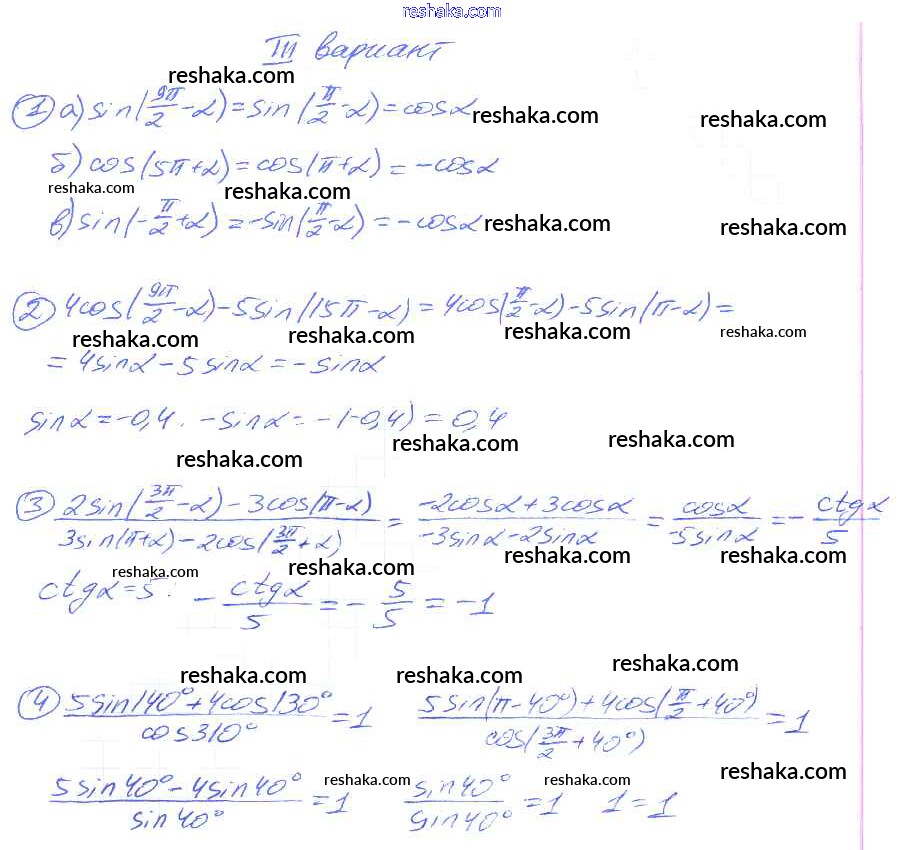 reshaka.com
III вариант
reshaka.com
① а) sin(9π/2 - α) = sin(π/2 - α) = cosα reshaka.com reshaka.com
б) cos(5π + α) = cos(π + α) = -cosα
reshaka.com reshaka.com
в) sin(-π/2 + α) = -sin(π/2 - α) = -cosα reshaka.com reshaka.com
② 4cos(9π/2 - α) - 5sin(15π - α) = 4cos(π/2 - α) - 5sin(π - α) =
reshaka.com reshaka.com reshaka.com reshaka.com
= 4sinα - 5sinα = -sinα
sinα = -0,4. -sinα = -(-0,4) = 0,4
reshaka.com reshaka.com reshaka.com
③ (2sin(3π/2 - α) - 3cos(π - α))/(3sin(π + α) - 2cos(3π/2 + α)) = (-2cosα + 3cosα)/(-3sinα - 2sinα) = cosα/(-5sinα) = -ctgα/5
reshaka.com reshaka.com reshaka.com reshaka.com
ctgα = 5: -ctgα/5 = -5/5 = -1
reshaka.com reshaka.com reshaka.com
④ (5sin140° + 4cos130°)/cos310° = 1 (5sin(π - 40°) + 4cos(π/2 + 40°))/cos(3π/2 + 40°) = 1
reshaka.com reshaka.com reshaka.com
(5sin40° - 4sin40°)/sin40° = 1 sin40°/sin40° = 1 1 = 1